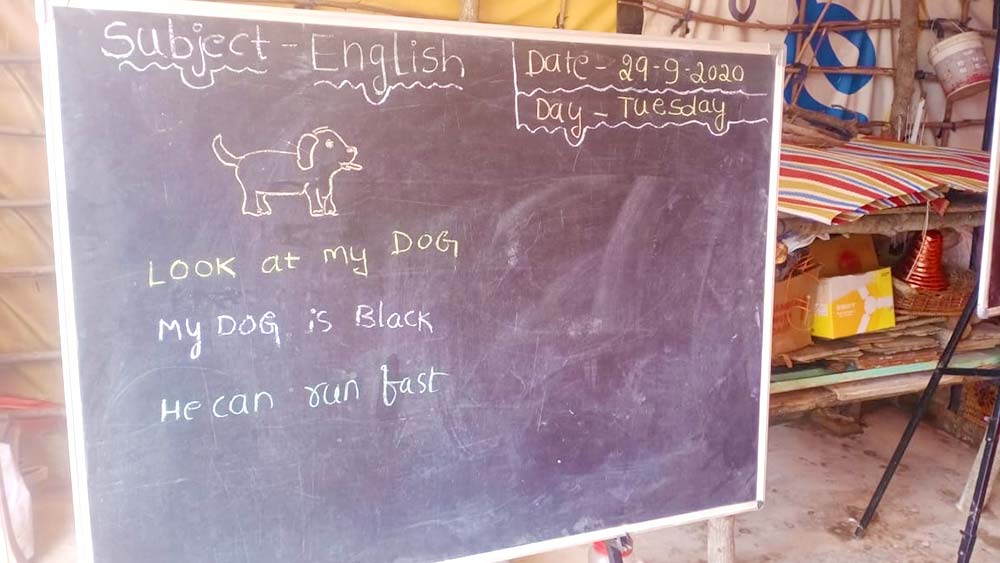 Subject - English
Date - 29-9-2020
Day - Tuesday
LOOK at my DOG
My DOG is Black
He can run fast